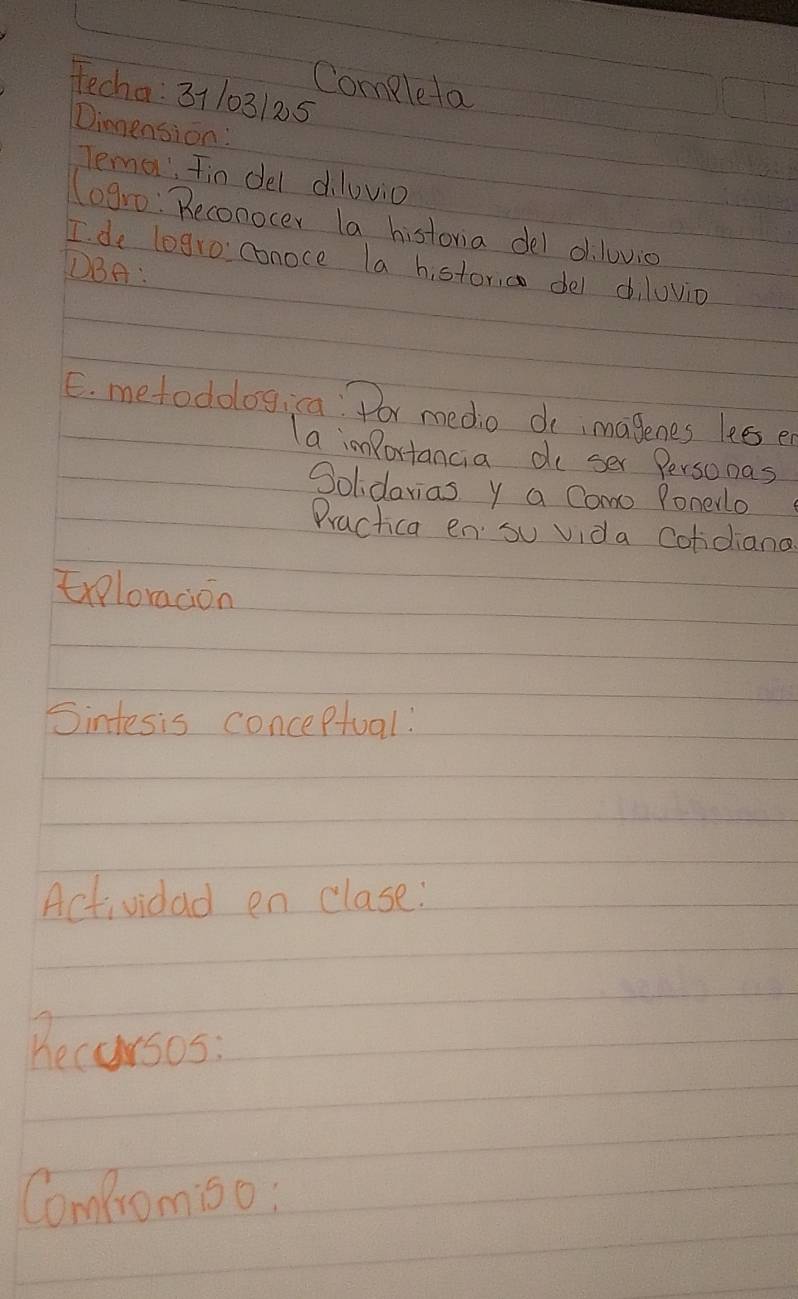 Completa
Fecha: 31/03/25
Dimension:
Tema: Fin del diluvio
Logro: Reconocer la historia del diluvio
I. de logro: conoce la historia del diluvio
DBA:
E. metodologica: Por medio de imagenes les en
la importancia de ser Personas
Solidarias y a Como Ponerlo
Practica en su vida cotidiana
Exploración
Sintesis conceptual:
Actividad en clase:
Recursos:
Compromiso: